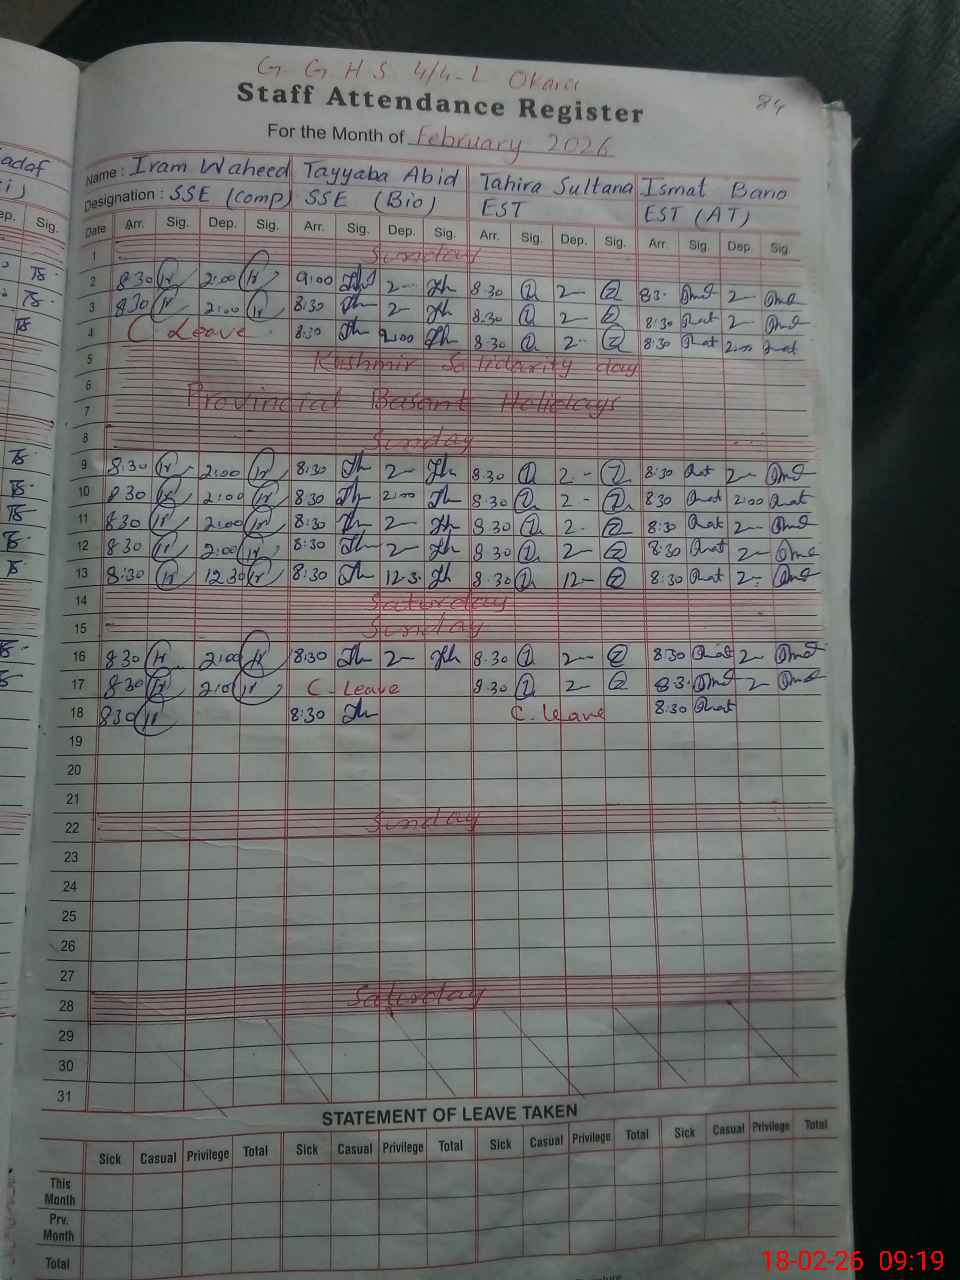 G G H S 4/4-L Okara
84
Staff Attendance Register
For the Month of February 2026
Name : Iram Waheed Tayyaba Abid Tahira Sultana Ismat Bano
Designation : SSE (Comp) SSE (Bio) EST EST (AT)
Date Arr. Sig. Dep. Sig. Arr. Sig. Dep. Sig. Arr. Sig. Dep. Sig. Arr. Sig. Dep. Sig.
1 Sunday
2 8:30 2:00 9:00 2 8:30 2 8:3
3 8:30 2:00 8:30 2 8:30 2 8:30 2
4 C Leave 8:30 2:00 8:30 2 8:30 2:00
5 Kashmir Solidarity day
6
Provincial Basant Holidays
7
8 Sunday
9 8:30 2:00 8:30 2 8:30 2 8:30 2
10 8:30 2:00 8:30 2:00 8:30 2 8:30 2:00
11 8:30 2:00 8:30 2 8:30 2 8:30 2
12 8:30 2:00 8:30 2 8:30 2 8:30 2
13 8:30 12:30 8:30 12:3 8:30 12 8:30 2
14 Saturday
15 Sunday
16 8:30 2:00 8:30 2 8:30 2 8:30 2
17 8:30 2:0 C-Leave 8:30 2 8:3 2
18 8:30 8:30 C.Leave 8:30
19
20
21
22 Sunday
23
24
25
26
27
28 Saturday
29
30
31
STATEMENT OF LEAVE TAKEN
Sick Casual Privilege Total Sick Casual Privilege Total Sick Casual Privilege Total Sick Casual Privilege Total
This
Month
Prv.
Month
Total
18-02-26 09:19